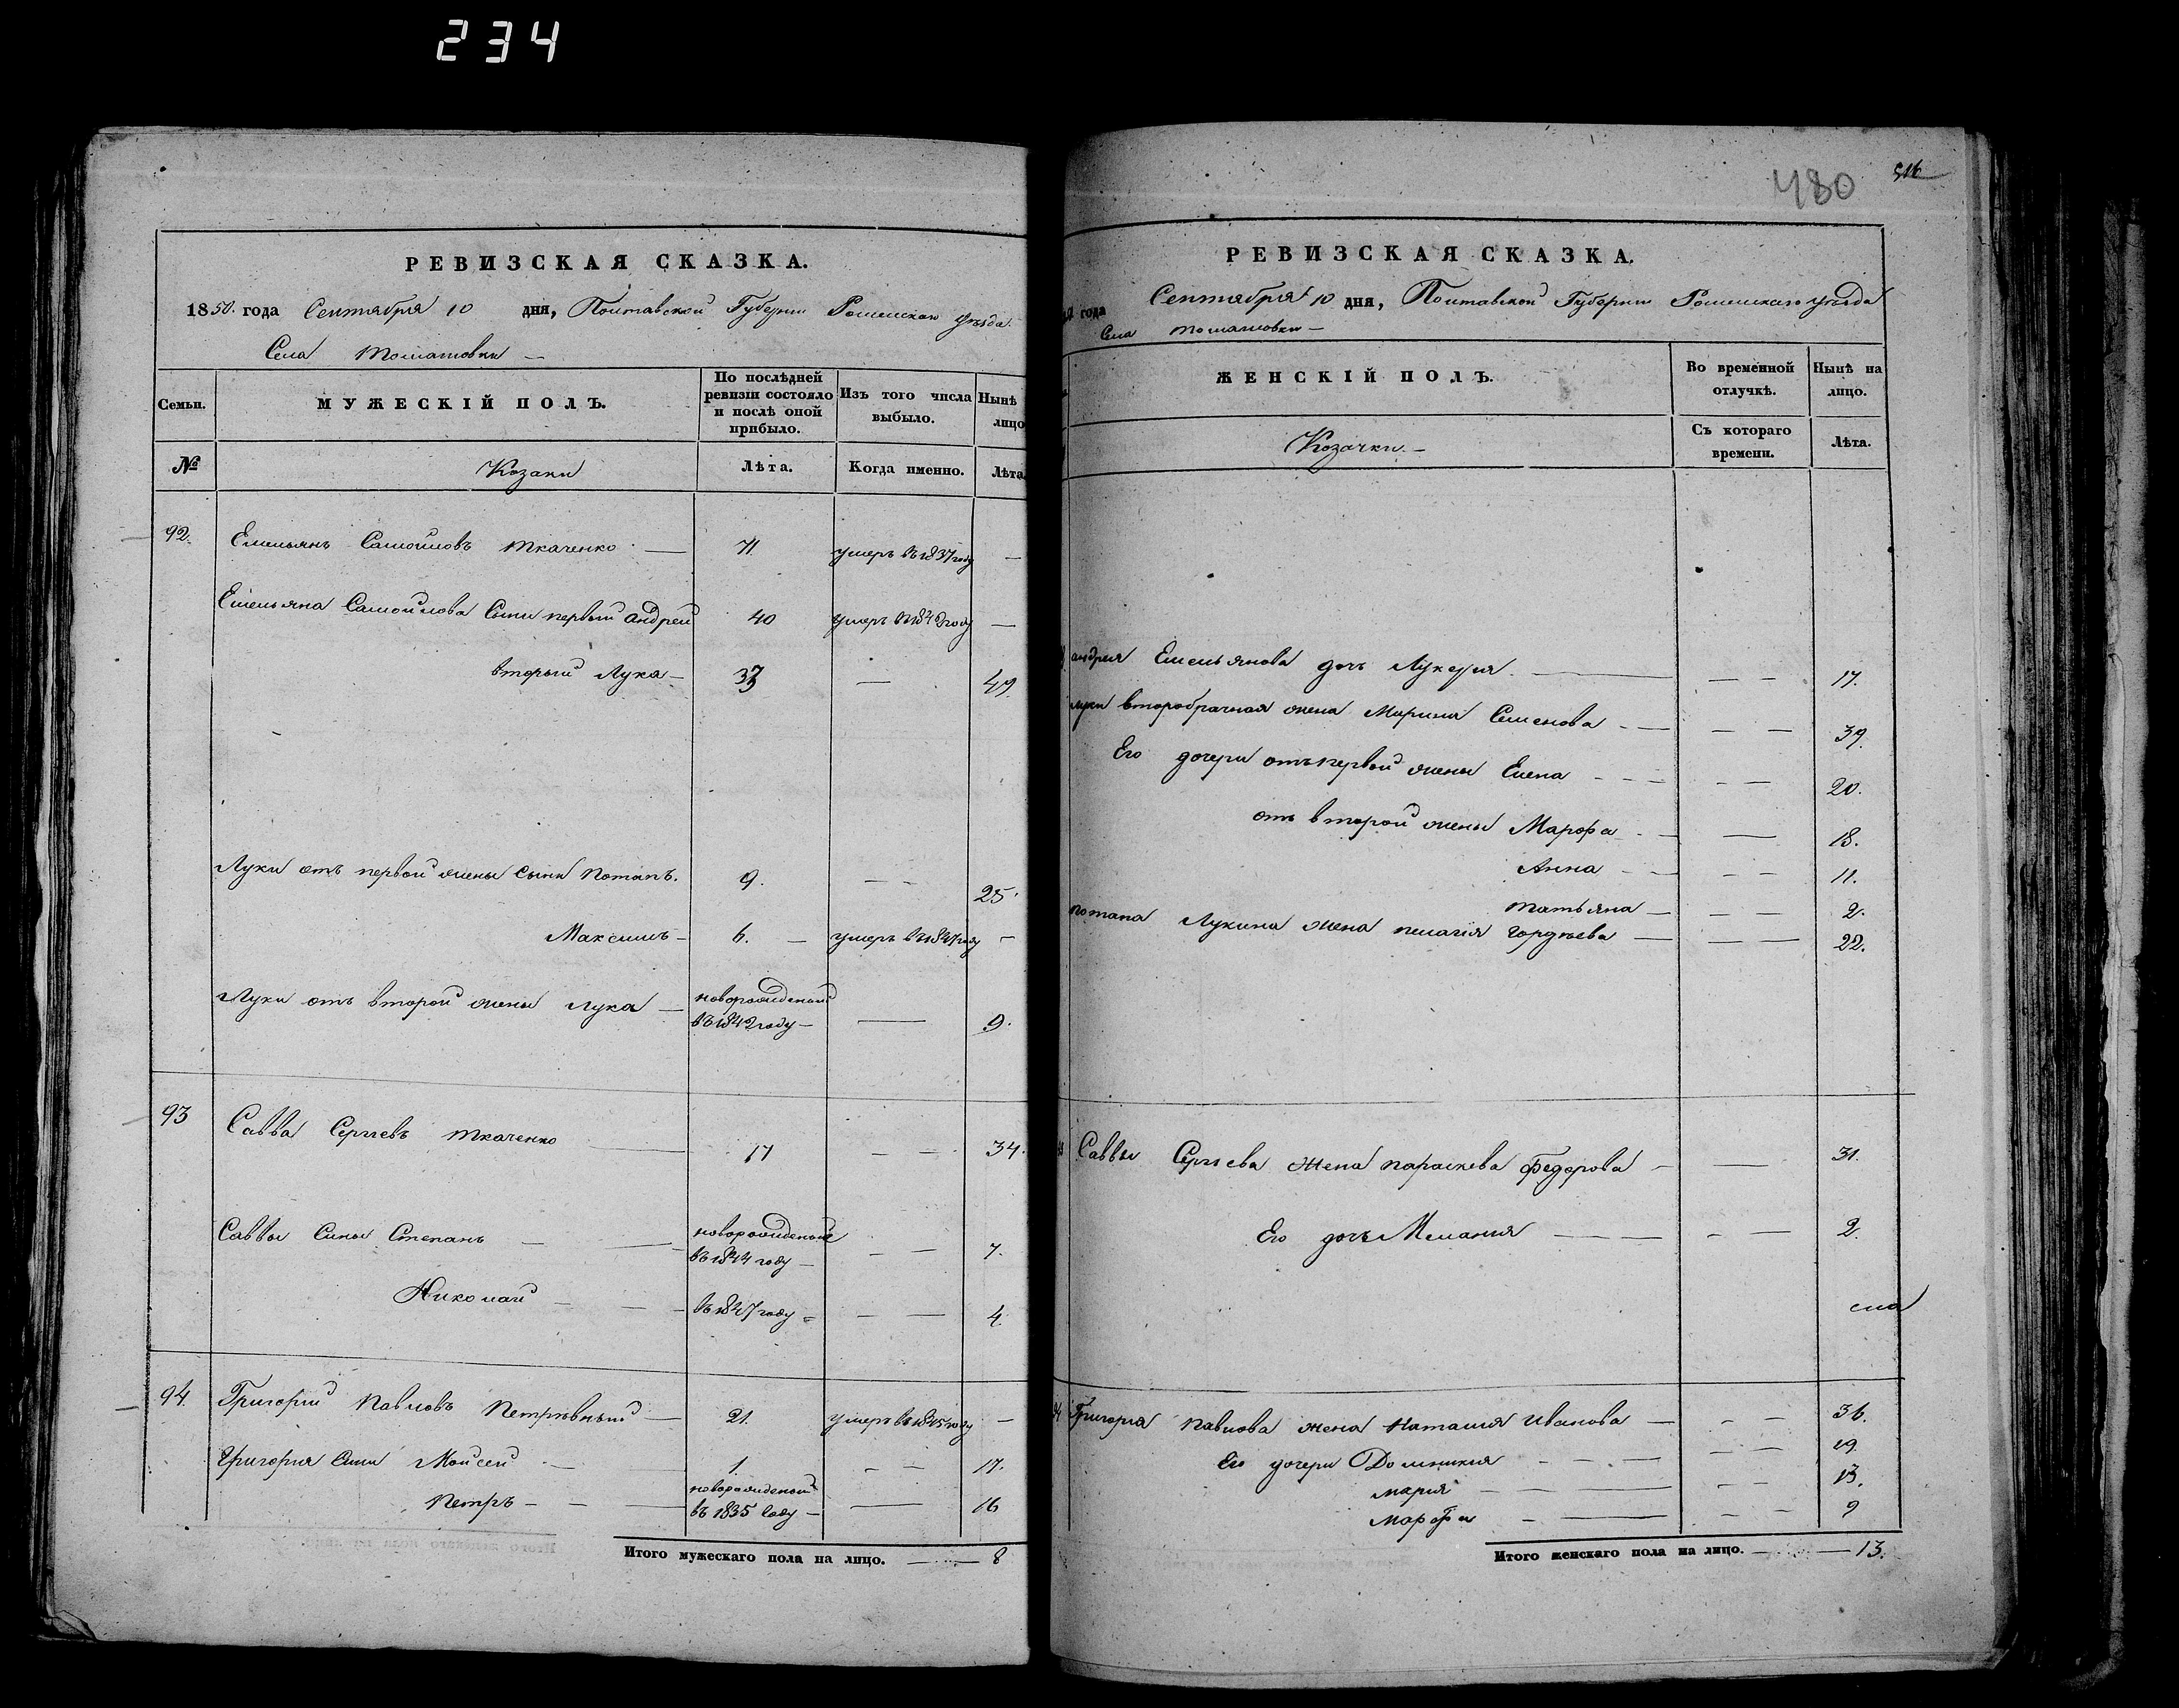 234
РЕВИЗСКАЯ СКАЗКА.
1850. года Сентября 10 дня, Полтавской Губернии Роменскаго уѣзда.
Села Толмачовки —
Семьи. МУЖЕСКІЙ ПОЛЪ. По послѣдней ревизіи состояло и послѣ оной прибыло. Изъ того числа выбыло. Нынѣ лицо
№ Козаки Лѣта. Когда именно. Лѣта
92. Емельянъ Самойловъ Ткаченко — 71. умеръ въ 1837 году —
Емельяна Самойлова Сыны первый Андрей 40 умеръ въ 1842 году —
вторый Лука — 33 — 49.
Луки отъ первой жены сыны Потапъ. 9. — - 25.
Максимъ — 6. — умеръ въ 1847 году —
Луки отъ второй жены Лука — новорожденный
въ 1842 году — — 9.
93 Савва Сергѣевъ Ткаченко — 17 — — 34.
Саввы Сыны Степанъ — — новорожденные
въ 1844 году — — — 7.
Николай — — — въ 1847 году — — — 4.
94. Григорій Павловъ — 21. умеръ въ 1845 году —
Григорія Сыны Мойсей — — 1. — — 17.
Петръ — — — новорожденный
въ 1835 году — — 16
Итого мужескаго пола на лицо. — — 8
480 516
РЕВИЗСКАЯ СКАЗКА.
года Сентября 10 дня, Полтавской Губерніи Роменскаго уѣзда
Села Толмачовки —
ЖЕНСКІЙ ПОЛЪ. Во временной отлучкѣ. Нынѣ на лицо.
Козачки. — Съ котораго времени. Лѣта.
Андрея Емельянова дочь Лукерія. — — — 17.
Луки второбрачная жена Марина Семенова — — — — 39.
Его дочери отъ первой жены Елена — — — — — 20.
отъ второй жены Марфа — — — 18.
Анна — — — — 11.
Татьяна — — — 2.
Потапа Лукина жена Пелагія Гордѣева — — — 22.
Саввы Сергѣева жена Параскева Федорова — — 31.
Его дочь Меланія — — — — — 2.
Григорія Павлова жена Наталія Иванова — — — 36.
Его дочери Домникія — — — — — 19.
Марія — — — — — 13.
Марфа — — — — 9
Итого женскаго пола на лицо. — — 13.